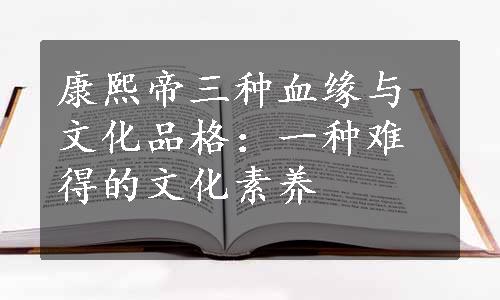 康熙帝三种血缘与
文化品格：一种难
得的文化素养